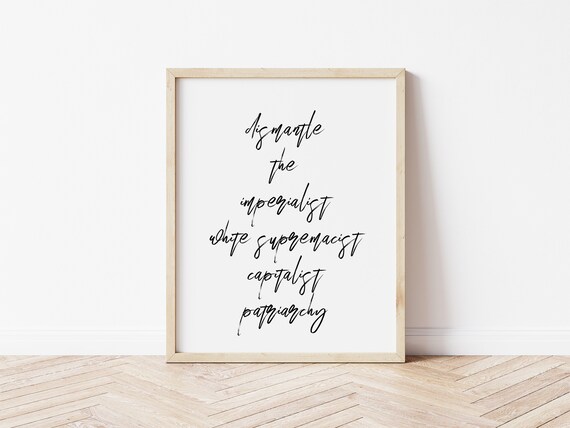 dismantle
the
imperialist
white supremacist
capitalist
patriarchy